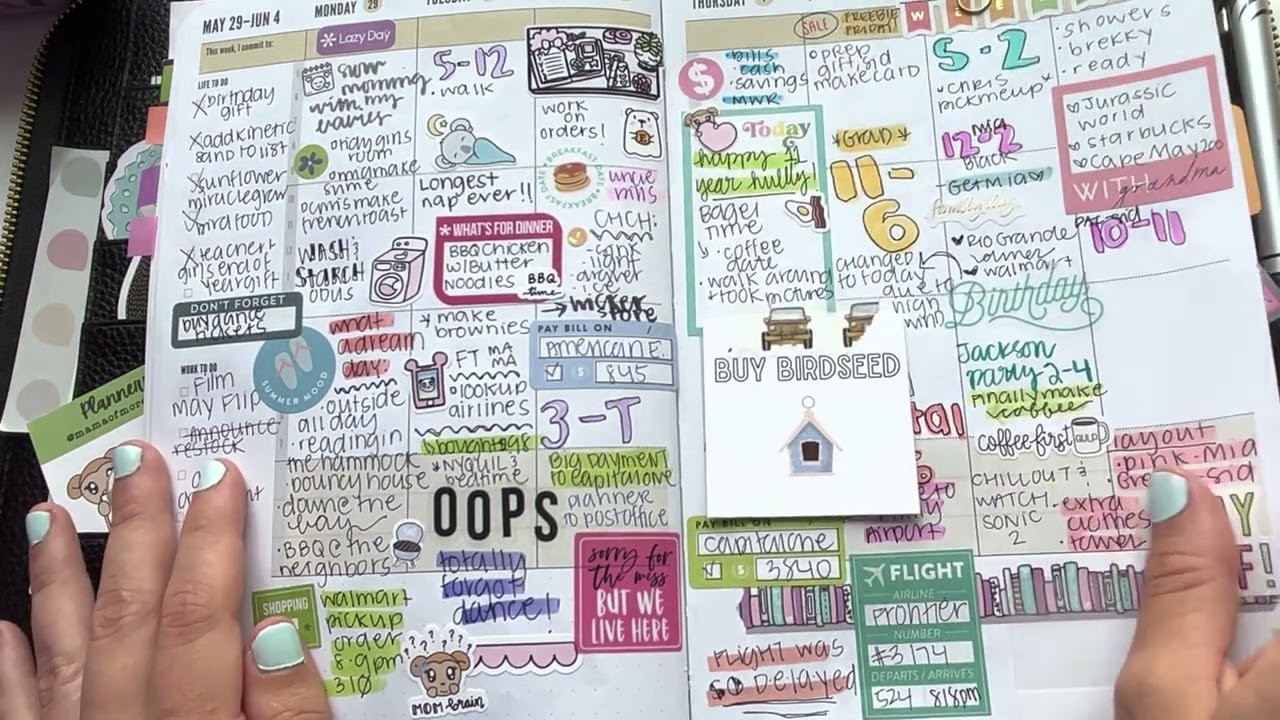 MAY 29-JUN 4
This week, I commit to:
LIFE TO DO
birthday
gift
add kinetic
sand to list
sunflower
miracle grow
teacher +
girls end of
year gift
DON'T FORGET
WORK TO DO
Film
May Flip
Announce
restock
Planner
MONDAY 29
* Lazy Day
with my
room
french toast
WASH &
STARCH
SUMMER MOOD
what
a dream
day!
outside
all day
reading in
hammock
bouncy house
down the
way
BBQ C the
neighbors
SHOPPING
walmart
pickup
order
8-9pm
310
5-12
walk
Longest
nap ever!!
* WHAT'S FOR DINNER
BBQ Chicken
w/ Butter
Noodles
BBQ
time
* make
brownies
FT MA
MA
lookup
airlines
* NyQuil &
bedtime
OOPS
totally
forgot
dance!
? ? ? ? ?
MOM brain
work
on
orders!
DATE BREAKFAST
DATE BREAKFAST
CHCH:
PAY BILL ON /
American E.
$ 845
3-T
Big payment
to capital one
to post office
sorry for
the mess
BUT WE
LIVE HERE
THURSDAY
$
bills
cash
savings
MWR
Today
happy 4
year hubby
Bagel
time
coffee
date
walk around
+ took pictures
BUY BIRDSEED
PAY BILL ON
capital one
$ 3840
FLIGHT was
SO DELAYED
SALE
FREEBIE
FRIDAY
prep
gift
make card
GRAD
11-
6
changed
to today
due to
high
wind
airport
FLIGHT
AIRLINE
Frontier
NUMBER
#3174
DEPARTS / ARRIVES
524 818pm
W E E
S-2
Chris
pick me up
Mia
12-2
Black
Get Mia
family day
Rio Grande
walmart
Birthday
Jackson
Party 2-4
Finally make
coffee
coffee first
GULP
CHILLOUT &
WATCH
SONIC
2
showers
brekky
ready
Jurassic
World
Starbucks
Cape May zoo
WITH grandma
10-11
layout
pink-Mia
extra
clothes
towel